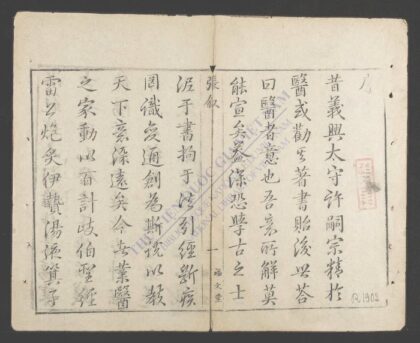 序
昔義興太守許嗣宗精於
醫或勸其著書貽後世答
曰醫者意也吾意所解莫
能宣矣蓋深恐學古之士
泥于書拘于法引經斷疾
罔識變通創為斯說以教
天下意深遠矣今世業醫
之家動以軒計岐伯聖經
雷公炮矣伊摯湯液箕子
張叙
一
福文堂
R.1902